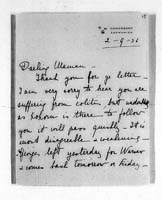 2-9-36
Darling Maman -
Thank you for yr letter -
I am very sorry to hear you are
suffering from colitis but
as is there to follow
you it will pass quickly - It is
most disagreeable & weakening -
left yesterday for
& comes back tomorrow or Friday -